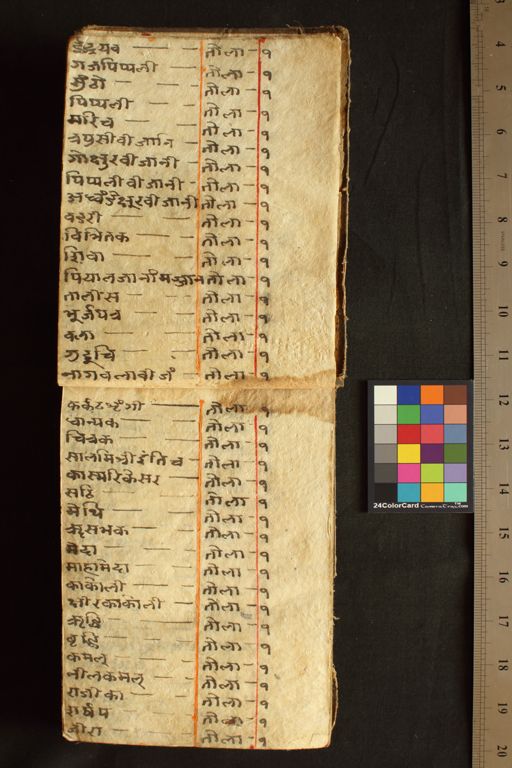 इंद्रयव — — तोला — १
गजपिप्पली — तोला — १
सुँठो — — तोला — १
पिप्पली — — तोला — १
मरिच — — तोला — १
त्रपुसीवीजानि — तोला — १
गोक्षुरवीजानी — तोला — १
पिप्पलीवीजानी - तोला — १
तोला — १
वडरी — — तोला — १
वित्रितक — — तोला — १
शिवा — — तोला — १
पियालजानीमज्जान तोला — १
तालीस — — तोला — १
भूर्जपत्र — — तोला — १
कला — — तोला — १
गुडूचि — - तोला — १
नागवलावीजँ — तोला — १
कर्कटशृँगी — तोला — १
धान्यक — — तोला — १
चित्रक — — तोला — १
सालमिश्रीइतिच — तोला — १
कास्मरिकेसर — तोला — १
सठि — — तोला — १
मेथि — — तोला — १
ऋसभक — — तोला — १
मेदा — — तोला — १
माहामेदा — — तोला — १
काकोली — — तोला — १
क्षीरकाकोली — तोला — १
ऋद्धि — — तोला — १
वृद्धि — — तोला — १
कमल् — — तोला — १
नीलकमल् — — तोला — १
राजीका — — तोला — १
सर्षप — — तोला — १
जीरा — — तोला — १